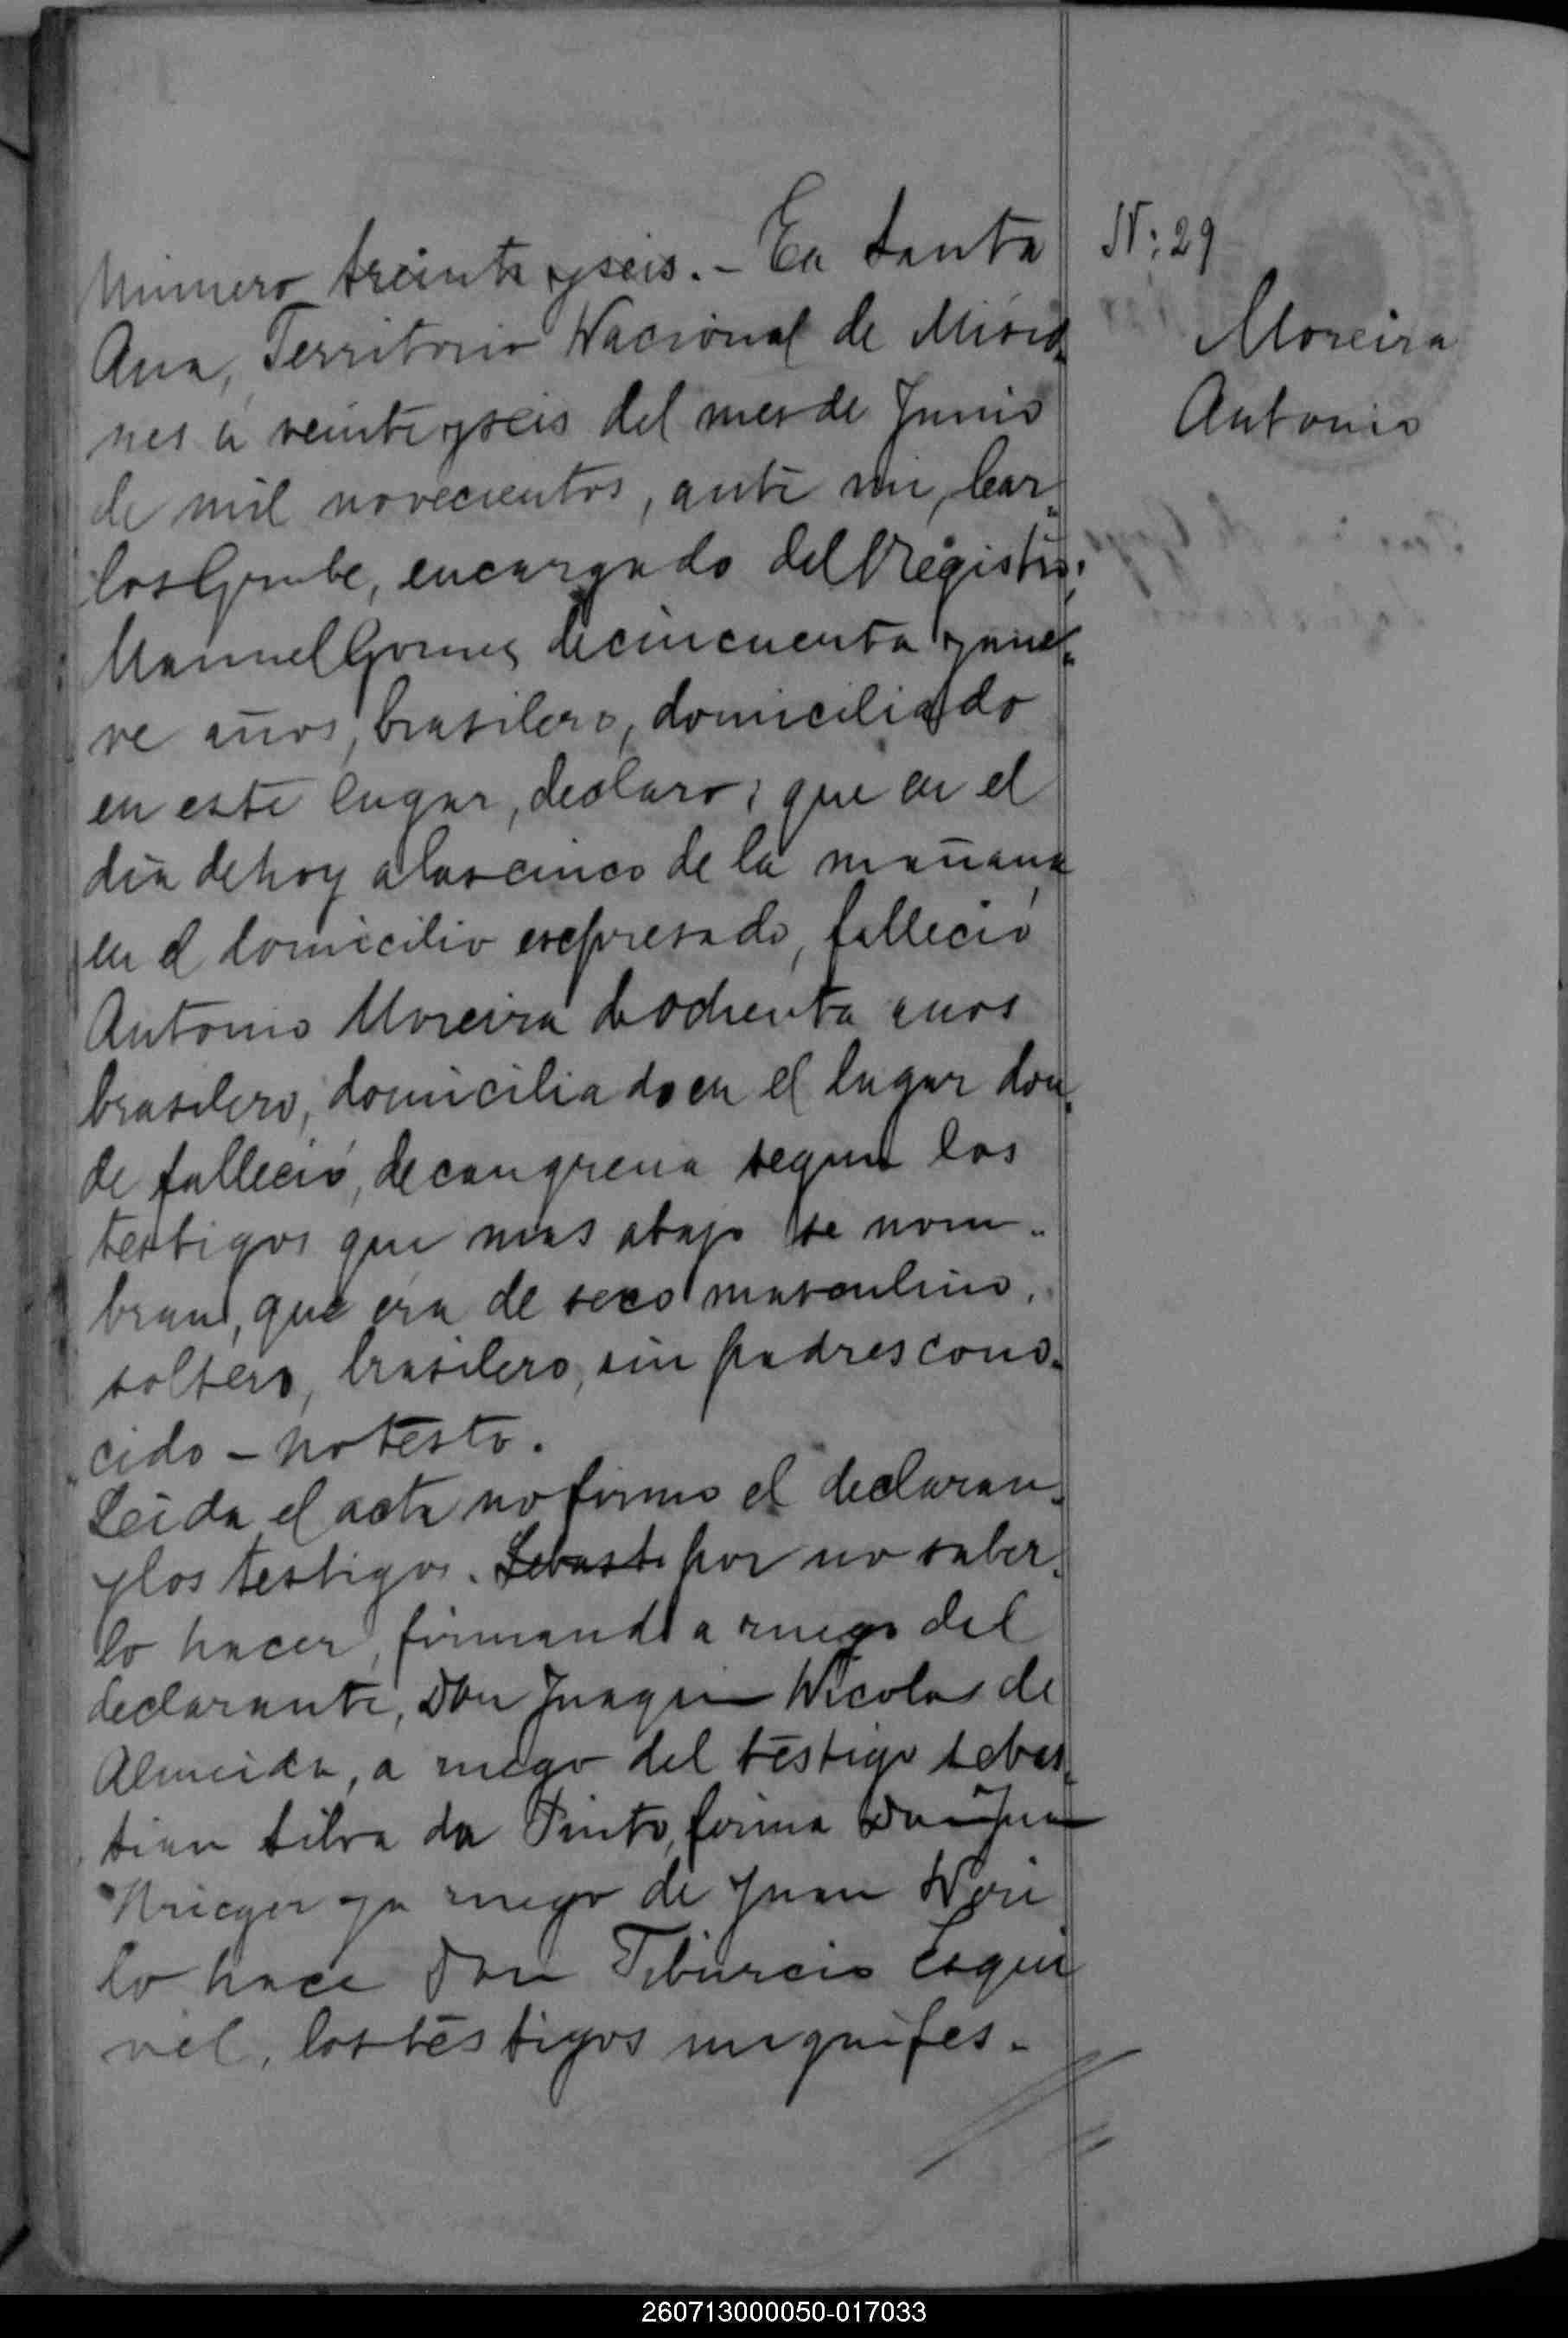 Numero treinta y seis. - En Santa
Ana, Territorio Nacional de Misio-
nes á veinte y seis del mes de Junio
de mil novecientos, ante mi, Car-
los Grube, encargado del Registro;
Manuel Gomes de cincuenta y nue-
ve años, brasilero, domiciliado
en este lugar, declaro; que en el
dia de hoy a las cinco de la mañana
en el domicilio expresado, falleció
Antonio Moreira de ochenta años
brasilero, domiciliado en el lugar don-
de falleció, de cangrena segun los
testigos que mas abajo se nom-
bran, que era de sexo masculino,
soltero, brasilero, sin padres cono-
cido - no testo.
Leida el acta no firmo el declaran-
y los testigos. Sebasti por no saber-
lo hacer, firmando a ruego del
declarante, Don Juaquin Nicolas de
Almeida, a ruego del testigo Sebas-
tian Silva da Pinto, firma Don Juan
Krieger y a ruego de Juan
lo hace Don Tiburcio Esqui
vel, los testigos
N: 29
Moreira
Antonio
260713000050-017033